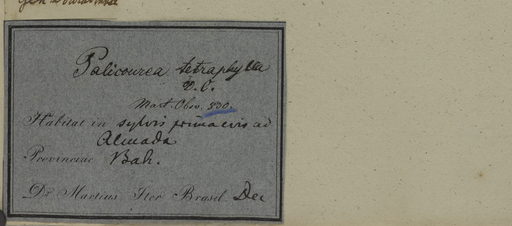 Palicourea tetraphylla
D. C.
Mart. Obs. 830.
Habitat in sylvis primaevis ad
Almada
Provinciae Bah.
Dr. Martius Iter Brasil. Dec